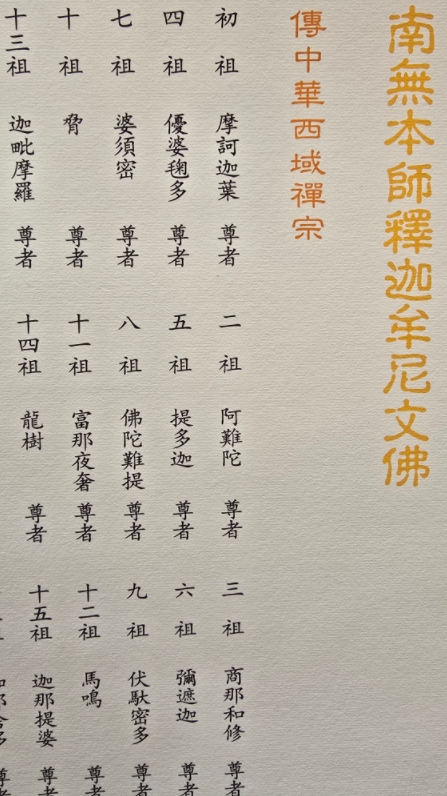 南無本師釋迦牟尼文佛
傳中華西域禪宗
初祖 摩訶迦葉 尊者 二祖 阿難陀 尊者 三祖 商那和修 尊者
四祖 優婆毱多 尊者 五祖 提多迦 尊者 六祖 彌遮迦 尊者
七祖 婆須密 尊者 八祖 佛陀難提 尊者 九祖 伏馱密多 尊者
十祖 脅 尊者 十一祖 富那夜奢 尊者 十二祖 馬鳴 尊者
十三祖 迦毗摩羅 尊者 十四祖 龍樹 尊者 十五祖 迦那提婆 尊者